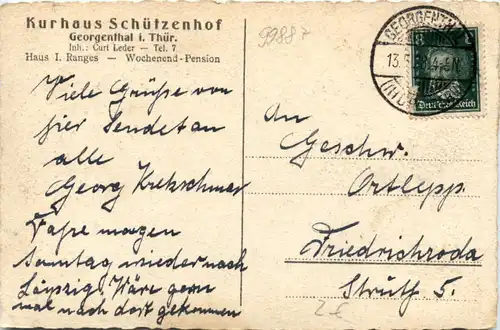 Kurhaus Schützenhof
Georgenthal i. Thür.
Inh.: Curt Leder — Tel. 7
Haus I. Ranges — Wochenend-Pension
9988
GEORGENTHAL
13.5. 4-5N.
(THÜR
Deutsches Reich
Viele Grüße von
hier sendet an
alle
Georg Kretschmer
morgen
Sonntag wieder nach
Leipzig. Wäre gern
mal nach dort gekommen
An
Geschw.
Ortlepp.
Friedrichroda
Struth 5.